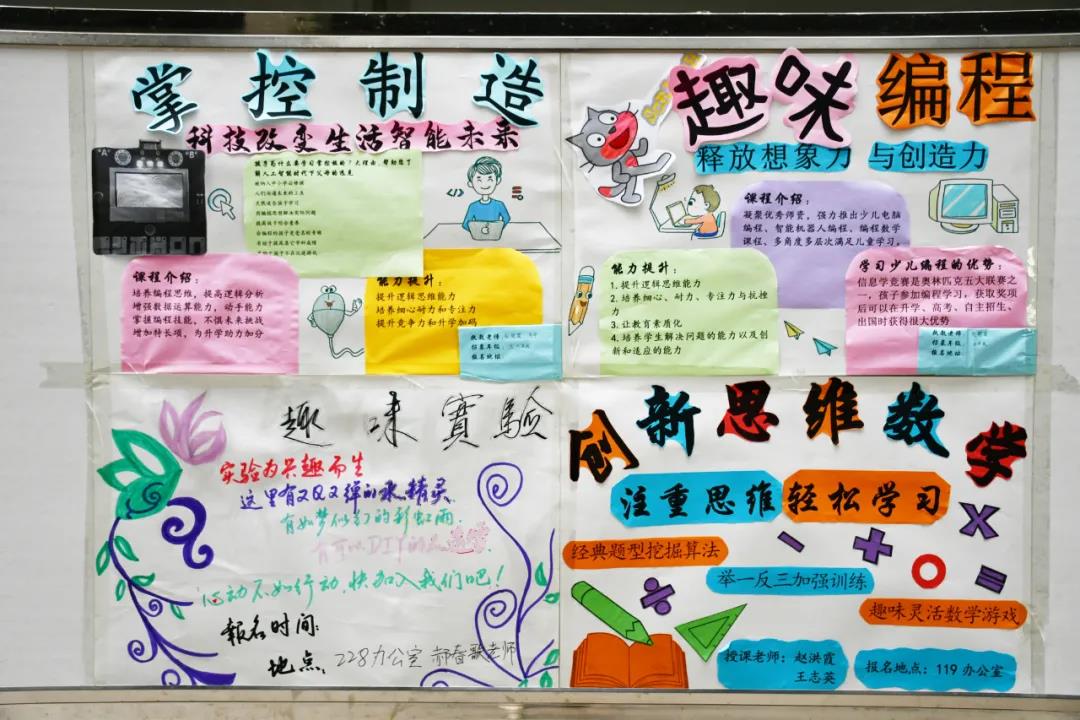 掌控制造
科技改变生活智能未来
"A"
"B"
孩子为什么要学习掌控板的7大理由，帮助您了
解人工智能时代下父母的远见
被纳入中小学必修课
天然适合孩子学习
</>
课程介绍：
培养编程思维，提高逻辑分析
增强数据运算能力，动手能力
掌握编程技能，不惧未来挑战
增加特长项，为升学助力加分
能力提升：
提升逻辑思维能力
培养细心耐力和专注力
提升竞争力和升学加码
授教老师
招募年级
报名地址
趣味编程
释放想象力 与创造力
课程介绍：
凝聚优秀师资，强力推出少儿电脑
编程、智能机器人编程、编程数学
课程、多角度多层次满足儿童学习。
能力提升：
1. 提升逻辑思维能力
2. 培养细心、耐力、专注力与抗挫
力
3. 让教育素质化
4. 培养学生解决问题的能力以及创
新和适应的能力
学习少儿编程的优势：
信息学竞赛是奥林匹克五大联赛之
一，孩子参加编程学习，获取奖项
后可以在升学、高考、自主招生、
出国时获得很大优势
授教老师
招募年级
报名地址
趣味實驗
实验为兴趣而生
这里有又Q又弹的水精灵
有如梦似幻的彩虹雨.
心动不如行动,快加入我们吧!
報名时间:
地点: 228办公室 郝春歌老师
创新思维数学
注重思维 轻松学习
经典题型挖掘算法
举一反三加强训练
趣味灵活数学游戏
授课老师：赵洪霞
王志英
报名地点：119办公室